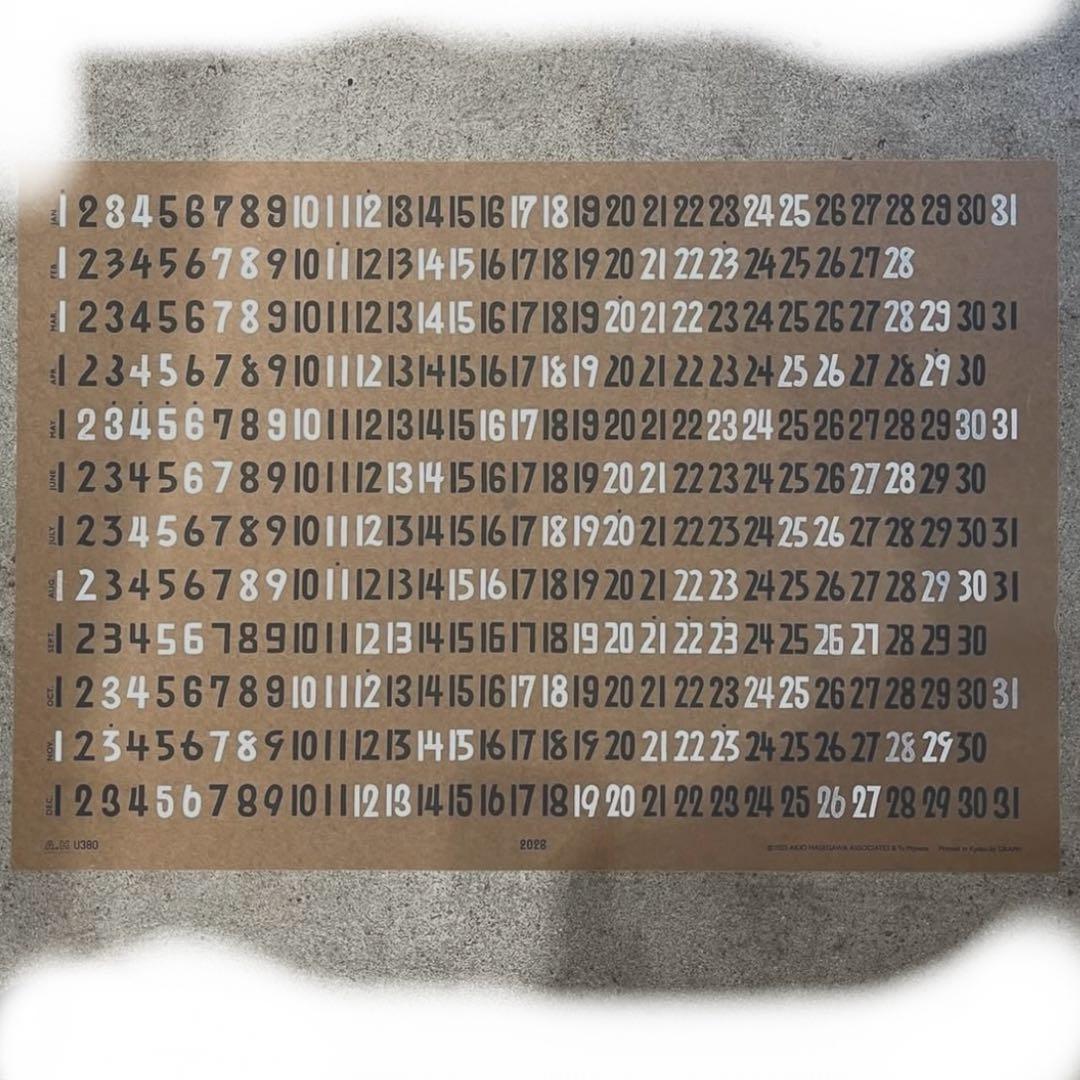 JAN. 1 2 3 4 5 6 7 8 9 10 11 12 13 14 15 16 17 18 19 20 21 22 23 24 25 26 27 28 29 30 31
FEB. 1 2 3 4 5 6 7 8 9 10 11 12 13 14 15 16 17 18 19 20 21 22 23 24 25 26 27 28
MAR. 1 2 3 4 5 6 7 8 9 10 11 12 13 14 15 16 17 18 19 20 21 22 23 24 25 26 27 28 29 30 31
APR. 1 2 3 4 5 6 7 8 9 10 11 12 13 14 15 16 17 18 19 20 21 22 23 24 25 26 27 28 29 30
MAY. 1 2 3 4 5 6 7 8 9 10 11 12 13 14 15 16 17 18 19 20 21 22 23 24 25 26 27 28 29 30 31
JUNE 1 2 3 4 5 6 7 8 9 10 11 12 13 14 15 16 17 18 19 20 21 22 23 24 25 26 27 28 29 30
JULY 1 2 3 4 5 6 7 8 9 10 11 12 13 14 15 16 17 18 19 20 21 22 23 24 25 26 27 28 29 30 31
AUG. 1 2 3 4 5 6 7 8 9 10 11 12 13 14 15 16 17 18 19 20 21 22 23 24 25 26 27 28 29 30 31
SEPT. 1 2 3 4 5 6 7 8 9 10 11 12 13 14 15 16 17 18 19 20 21 22 23 24 25 26 27 28 29 30
OCT. 1 2 3 4 5 6 7 8 9 10 11 12 13 14 15 16 17 18 19 20 21 22 23 24 25 26 27 28 29 30 31
NOV. 1 2 3 4 5 6 7 8 9 10 11 12 13 14 15 16 17 18 19 20 21 22 23 24 25 26 27 28 29 30
DEC. 1 2 3 4 5 6 7 8 9 10 11 12 13 14 15 16 17 18 19 20 21 22 23 24 25 26 27 28 29 30 31
A.H U380 2026 ASSOCIATES & Printed in by GRAPH